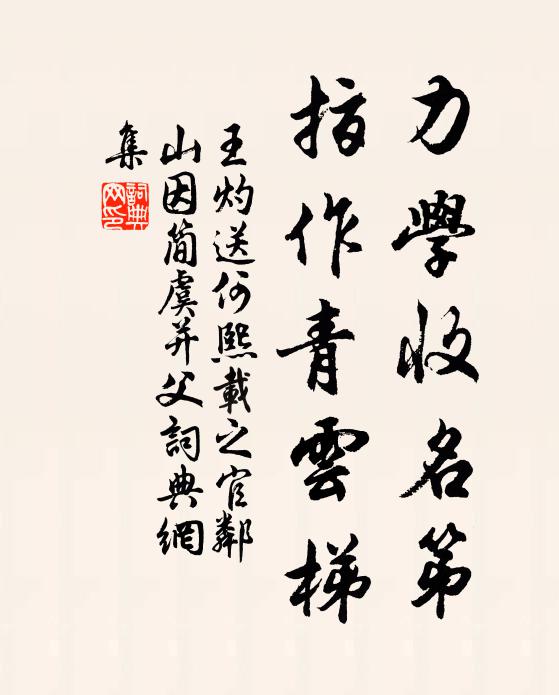 力學收名第
指作青雲梯
王灼送何熙載之官鄰
山因簡虞并父詞典網
集
詞典網印